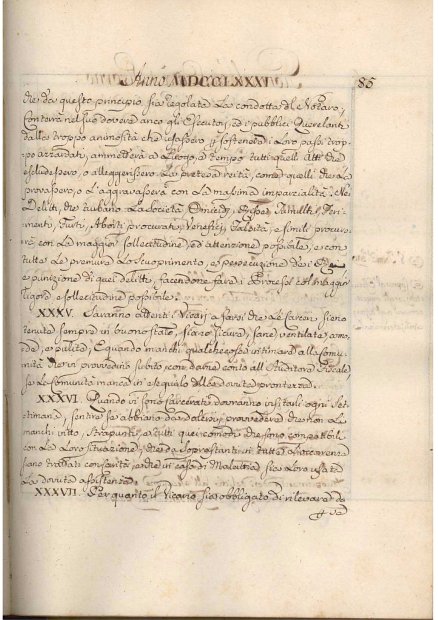 Anno MDCCLXXXI
85
che da questo principio sia regolata la condotta del Notaro,
Conterrà nel suo dovere anco gli Esecutori, ed i pubblici Querelanti
dalla troppo animosità che
po azzardati, ammetterà a Luogo, e tempo tutti quelli Atti che
escludessero, o alleggerissero la pretesa reità, come quelli che la
provassero, o l'aggravassero con la massima imparzialità. Nei
Delitti, che turbano la Società, Omicidj, Risse, Tumulti, Feri-
menti, Furti, Aborti procurati, Venefizj, Falsità, e simili procure-
rà con la maggior sollecitudine, ed attenzione possibile, e con
tutte le premure lo scuoprimento, e persecuzione de i Rei,
e punizione di quei delitti, facendone fare i Processi col maggior
rigore, e sollecitudine possibile.
XXXV. Saranno attenti i Vicarj a farsi che le Carceri sieno
tenute sempre in buono stato, sieno sicure, sane, ventilate, como-
de, e pulite, E quando manchi qualche cosa intimerà alla Comu-
nità che vi provveda subito, con darne conto all'Auditore Fiscale,
se la Comunità manca in eseguirlo colla dovuta prontezza.
XXXVI. Quando vi sono Carcerati dovranno visitarli ogni Set-
timana, sentire se abbiano da dolersi, provvedere che non le
manchi vitto, Strapunti, e tutti quei comodi che sono compatibili
con la Loro situazione, che da Soprastanti in tutte le occorrenze
siano trattati con carità, e che in caso di Malattia sia Loro usata
la dovuta assistenza.
XXXVII. Per quanto il Vicario sia obbligato di rilevare da